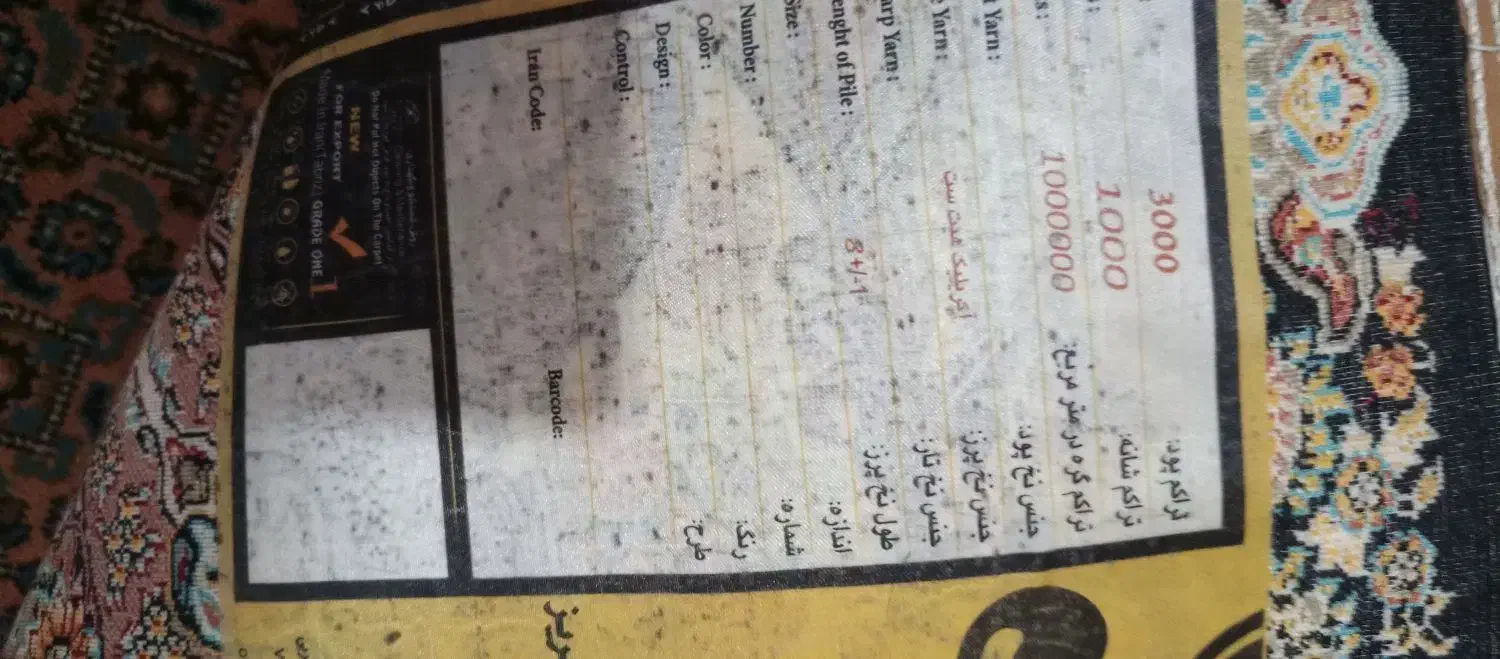 3000 تراکم پود:
1000 تراکم شانه:
s: 1000000 تراکم گره در متر مربع:
t Yarn: جنس نخ پود:
e Yarn: اکریلیک هیت ست جنس نخ پرز:
arp Yarn: جنس نخ تار:
enght of Pile: 8+/-1 طول نخ پرز:
Size: اندازه:
Number: شماره:
Color: رنگ:
Design: طرح:
Control:
Iran Code: Barcode:
Do Not Put Hot Objects On The Carpet
NEW
FOR EXPORT
Made in Iran/Tabriz GRADE ONE 1